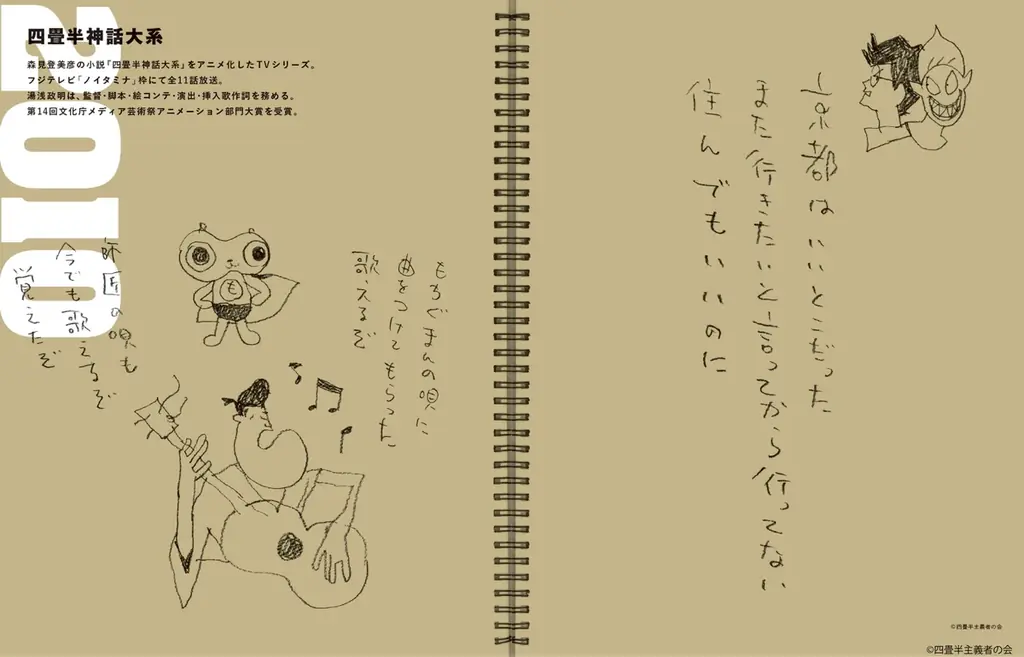 2010
四畳半神話大系
森見登美彦の小説「四畳半神話大系」をアニメ化したTVシリーズ。
フジテレビ「ノイタミナ」枠にて全11話放送。
湯浅政明は、監督・脚本・絵コンテ・演出・挿入歌作詞を務める。
第14回文化庁メディア芸術祭アニメーション部門大賞を受賞。
師匠の唄も
今でも歌えるぞ
覚えたぞ
も
もちぐまんの唄に
曲をつけてもらった
歌えるぞ
京都はいいとこだった
また行きたいと言ってから行ってない
住んでもいいのに
©四畳半主義者の会
©四畳半主義者の会